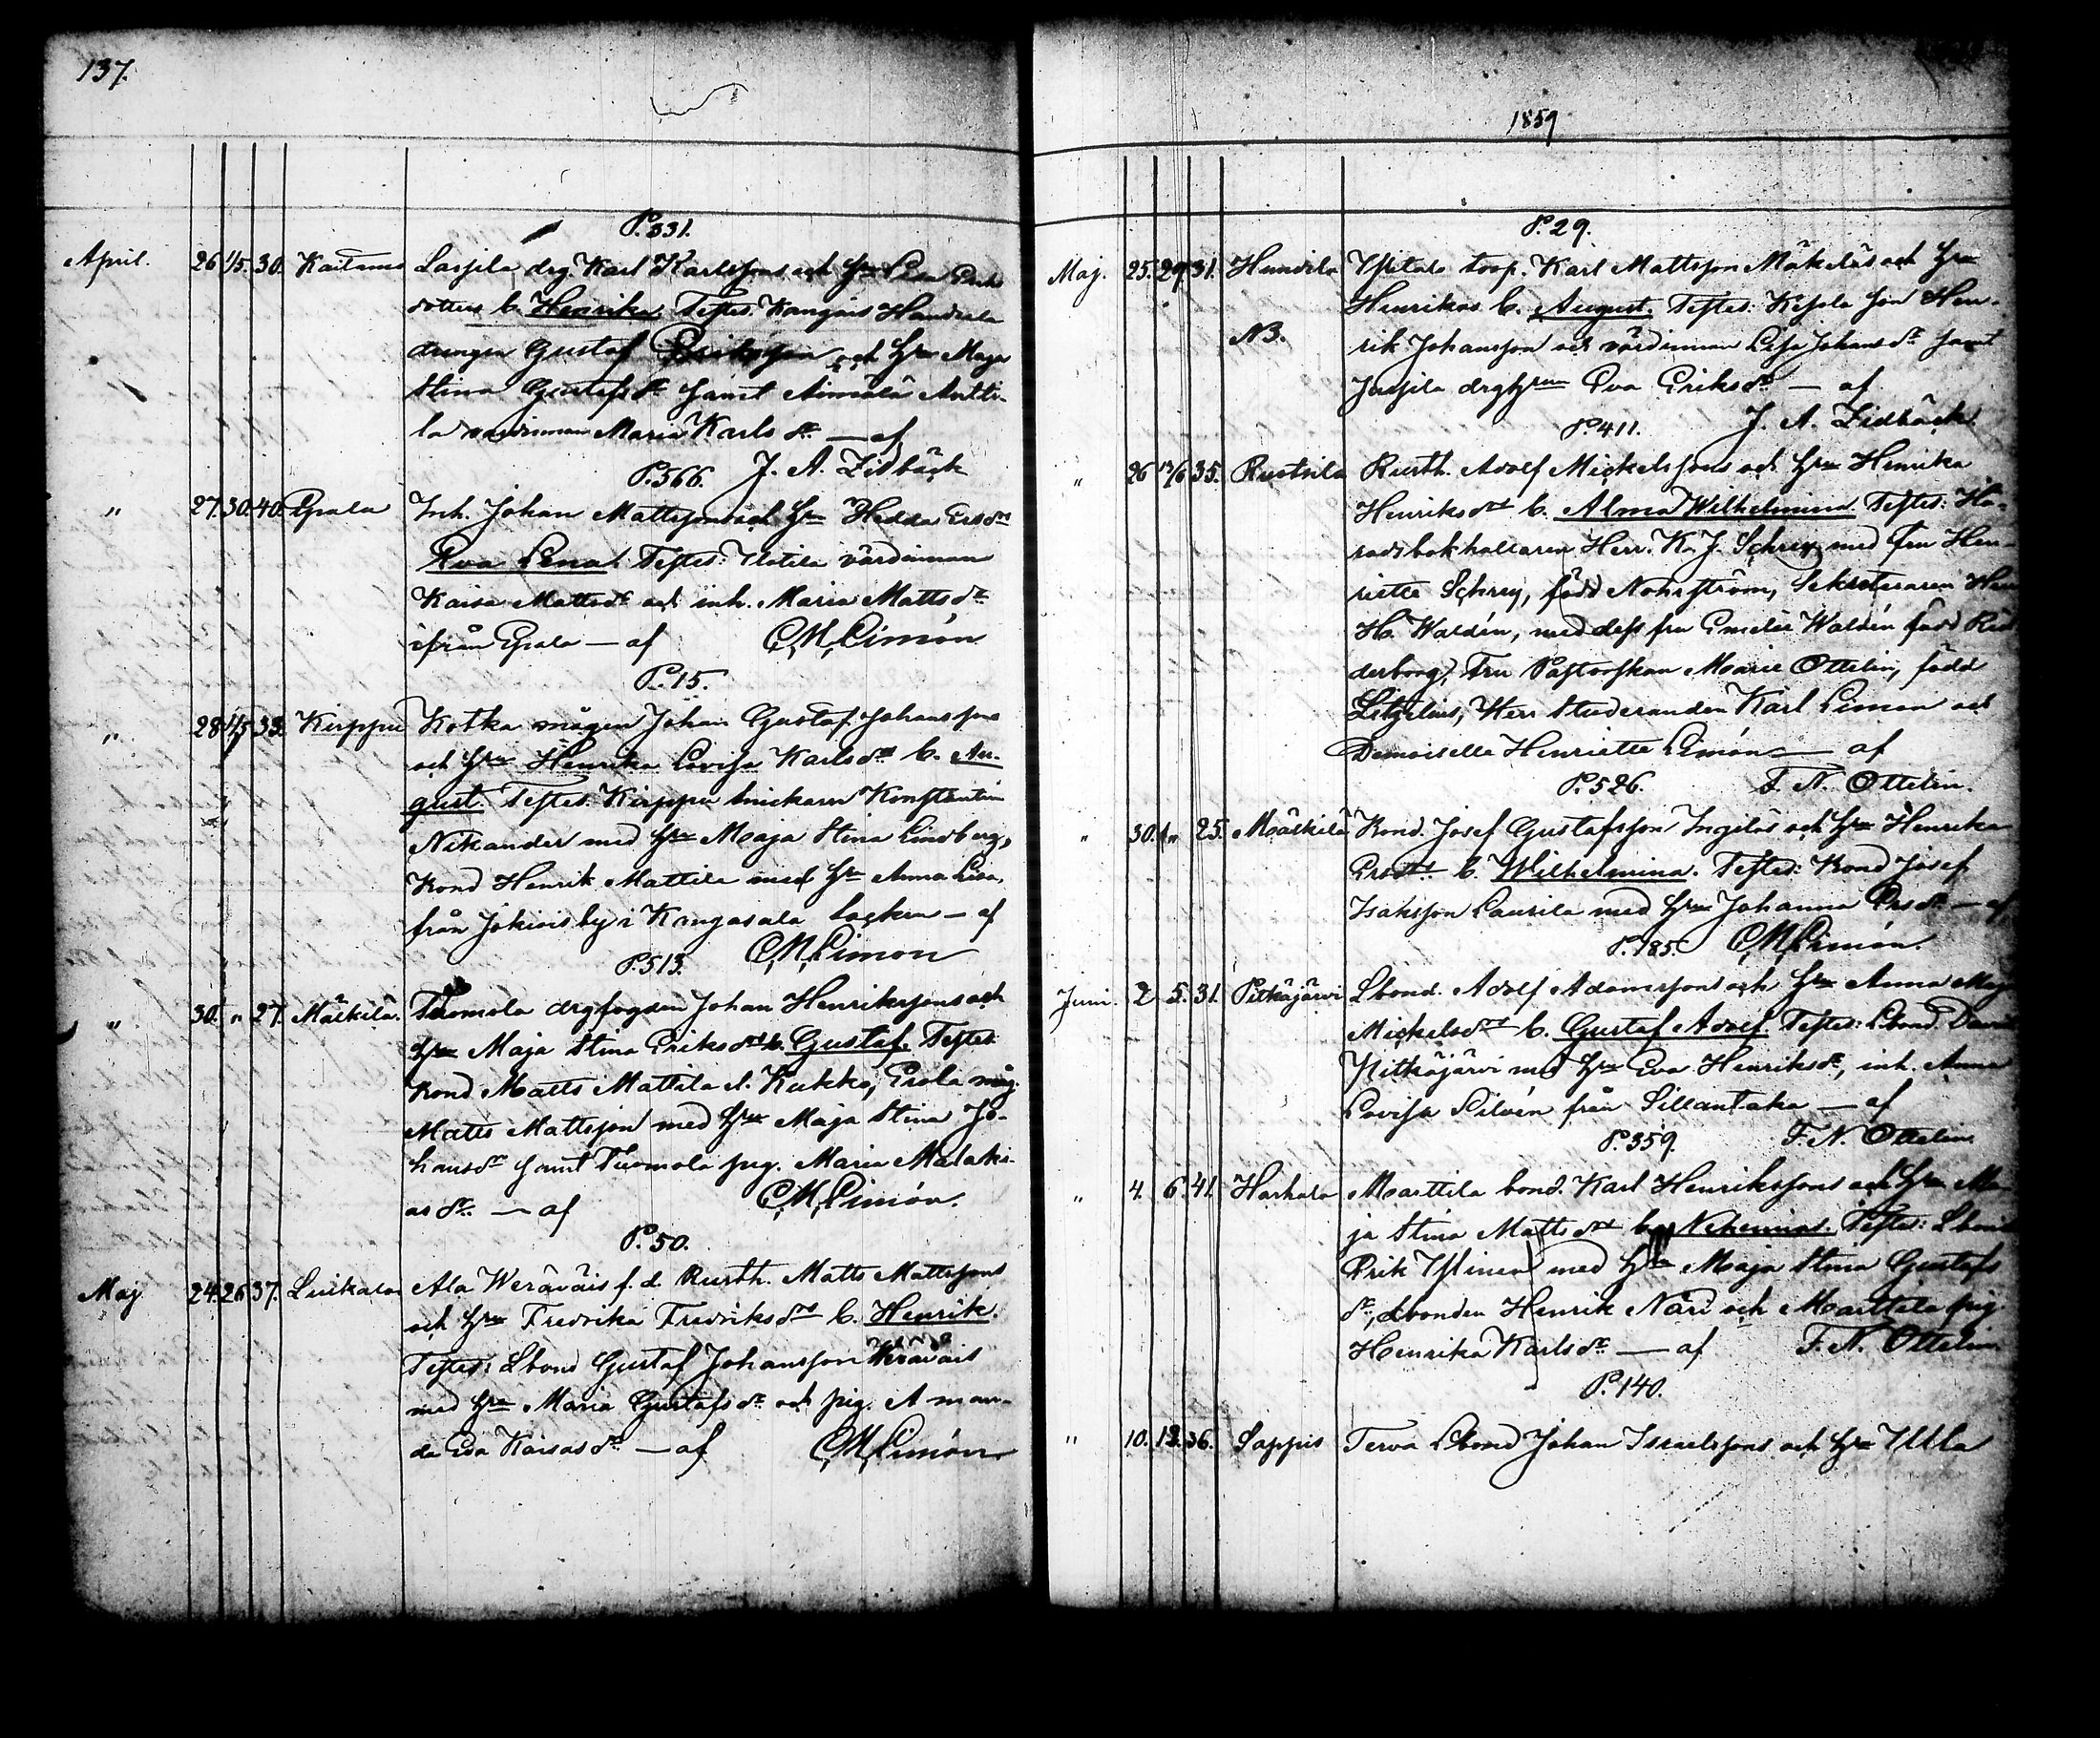 137.
P. 331.
April. 26 1/5. 30. Kaitamo Lassila drg. Karl Karlssons och Hru Lisa Eriks
dotters b. Henrika. Testes: Kangais Handrola
drengen Gustaf Eriksson och Hru Maja
Stina Gustafs dr samt Aimälä Antti-
la värdinnan Maria Karls dr — af
P. 366. J. A. Lidbäck
" 27. 30. 40. Epaala Inh. Johan Mattssons och Hru Hedda Ers drs
Eva Lena. Testes: Ylotila värdinnan
Kaisa Matts dr och inh. Maria Matts dr
ifrån Epaala — af C. M. Limón
P. 15.
" 28 1/5 33. Kirppu Kotka mågen Johan Gustaf Johanssons
och Hru Henrika Lovisa Karls drs b. Au-
gust. Testes: Kirppu snickaren Konstantin
Nikander med Hru Maja Stina Lindberg,
Kond Henrik Mattila med Hru Anna Lisa,
från Jokiois by i Kangasala socken — af
P. 513. C. M. Limon
" 30. " 27. Mälkilä. Tuomola drgfogden Johan Henrikssons och
Hru Maja Stina Eriks drs b. Gustaf. Testes:
Kond Matts Mattila l. Kukko, Erola måg.
Matts Mattsson med Hru Maja Stina Jo-
hans dr samt Tuomola pig. Maria Malaki-
as dr. — af C. M. Limón.
P. 50.
Maj 24. 26. 37. Liuksala Ala Weräväis f. d. Rusth. Matts Mattssons
och Hru Fredrika Fredriks drs b. Henrik.
Testes: Lbond Gustaf Johansson Weräväis
med Hru Maria Gustafs dr och pig. Aman-
da Eva Kaisas dr. — af C. M. Limón
1859
P. 29.
Maj. 25. 29. 31. Huwila Ylitalo torp. Karl Mattsson Mäkeläs och Hru
Henrikas b. August. Testes: son Hen-
NB. rik Johansson och värdinnan Lisa Johans dr samt
Jussila drghru Eva Eriks dr — af
P. 411. J. A. Lidbäck.
" 26 12/6 35. Rustila Rusth. Adolf Mickelssons och Hru Henrika
Henriks drs b. Alma Wilhelmina. Testes: Hä-
radsbokhållaren Herr. K. J. Schrey med fru Hen-
riette Schrey, född Nohrström, Sekreteraren Herr
H. Waldén, med dess fru Emelie Waldén född Rid
derborg, Fru Pastorskan Marie Ottelin, född
Litzelius, Herr Studeranden Karl Limon och
Demoiselle Henriette Limón — af
P. 526. F. N. Ottelin.
" 30. " 25. Mälkilä Kond. Josef Gustafsson Ingiläs och Hru Henrika
Ers drs b. Wilhelmina. Testes: Kond Josef
Isaksson Laurila med Hru Johanna Ers dr — af
P. 185. C. M. Limón.
Juni. 2 5. 31. Pitkäjärvi Lbond. Adolf Adamssons och Hru Anna Maja
Mickels drs b. Gustaf Adolf. Testes: Lbond. David
Pitkäjärvi med Hru Eva Henriks dr, inh. Anna
Lovisa Silvén från Sillantaka — af
P. 359. F. N. Ottelin
" 4. 6. 41. Harhala Marttila bond. Karl Henrikssons och Hru Ma
ja Stina Matts drs b. Nehemias. Testes: Lbond
Erik Ylinen med Hru Maja Stina Gustafs
dr, Lbonden Henrik Näri och Marttila pig.
Henrika Karls dr — af F. N. Ottelin
P. 140.
" 10. 12. 36. Sappis Terva Lbond Johan Israelssons och Hru Ulla